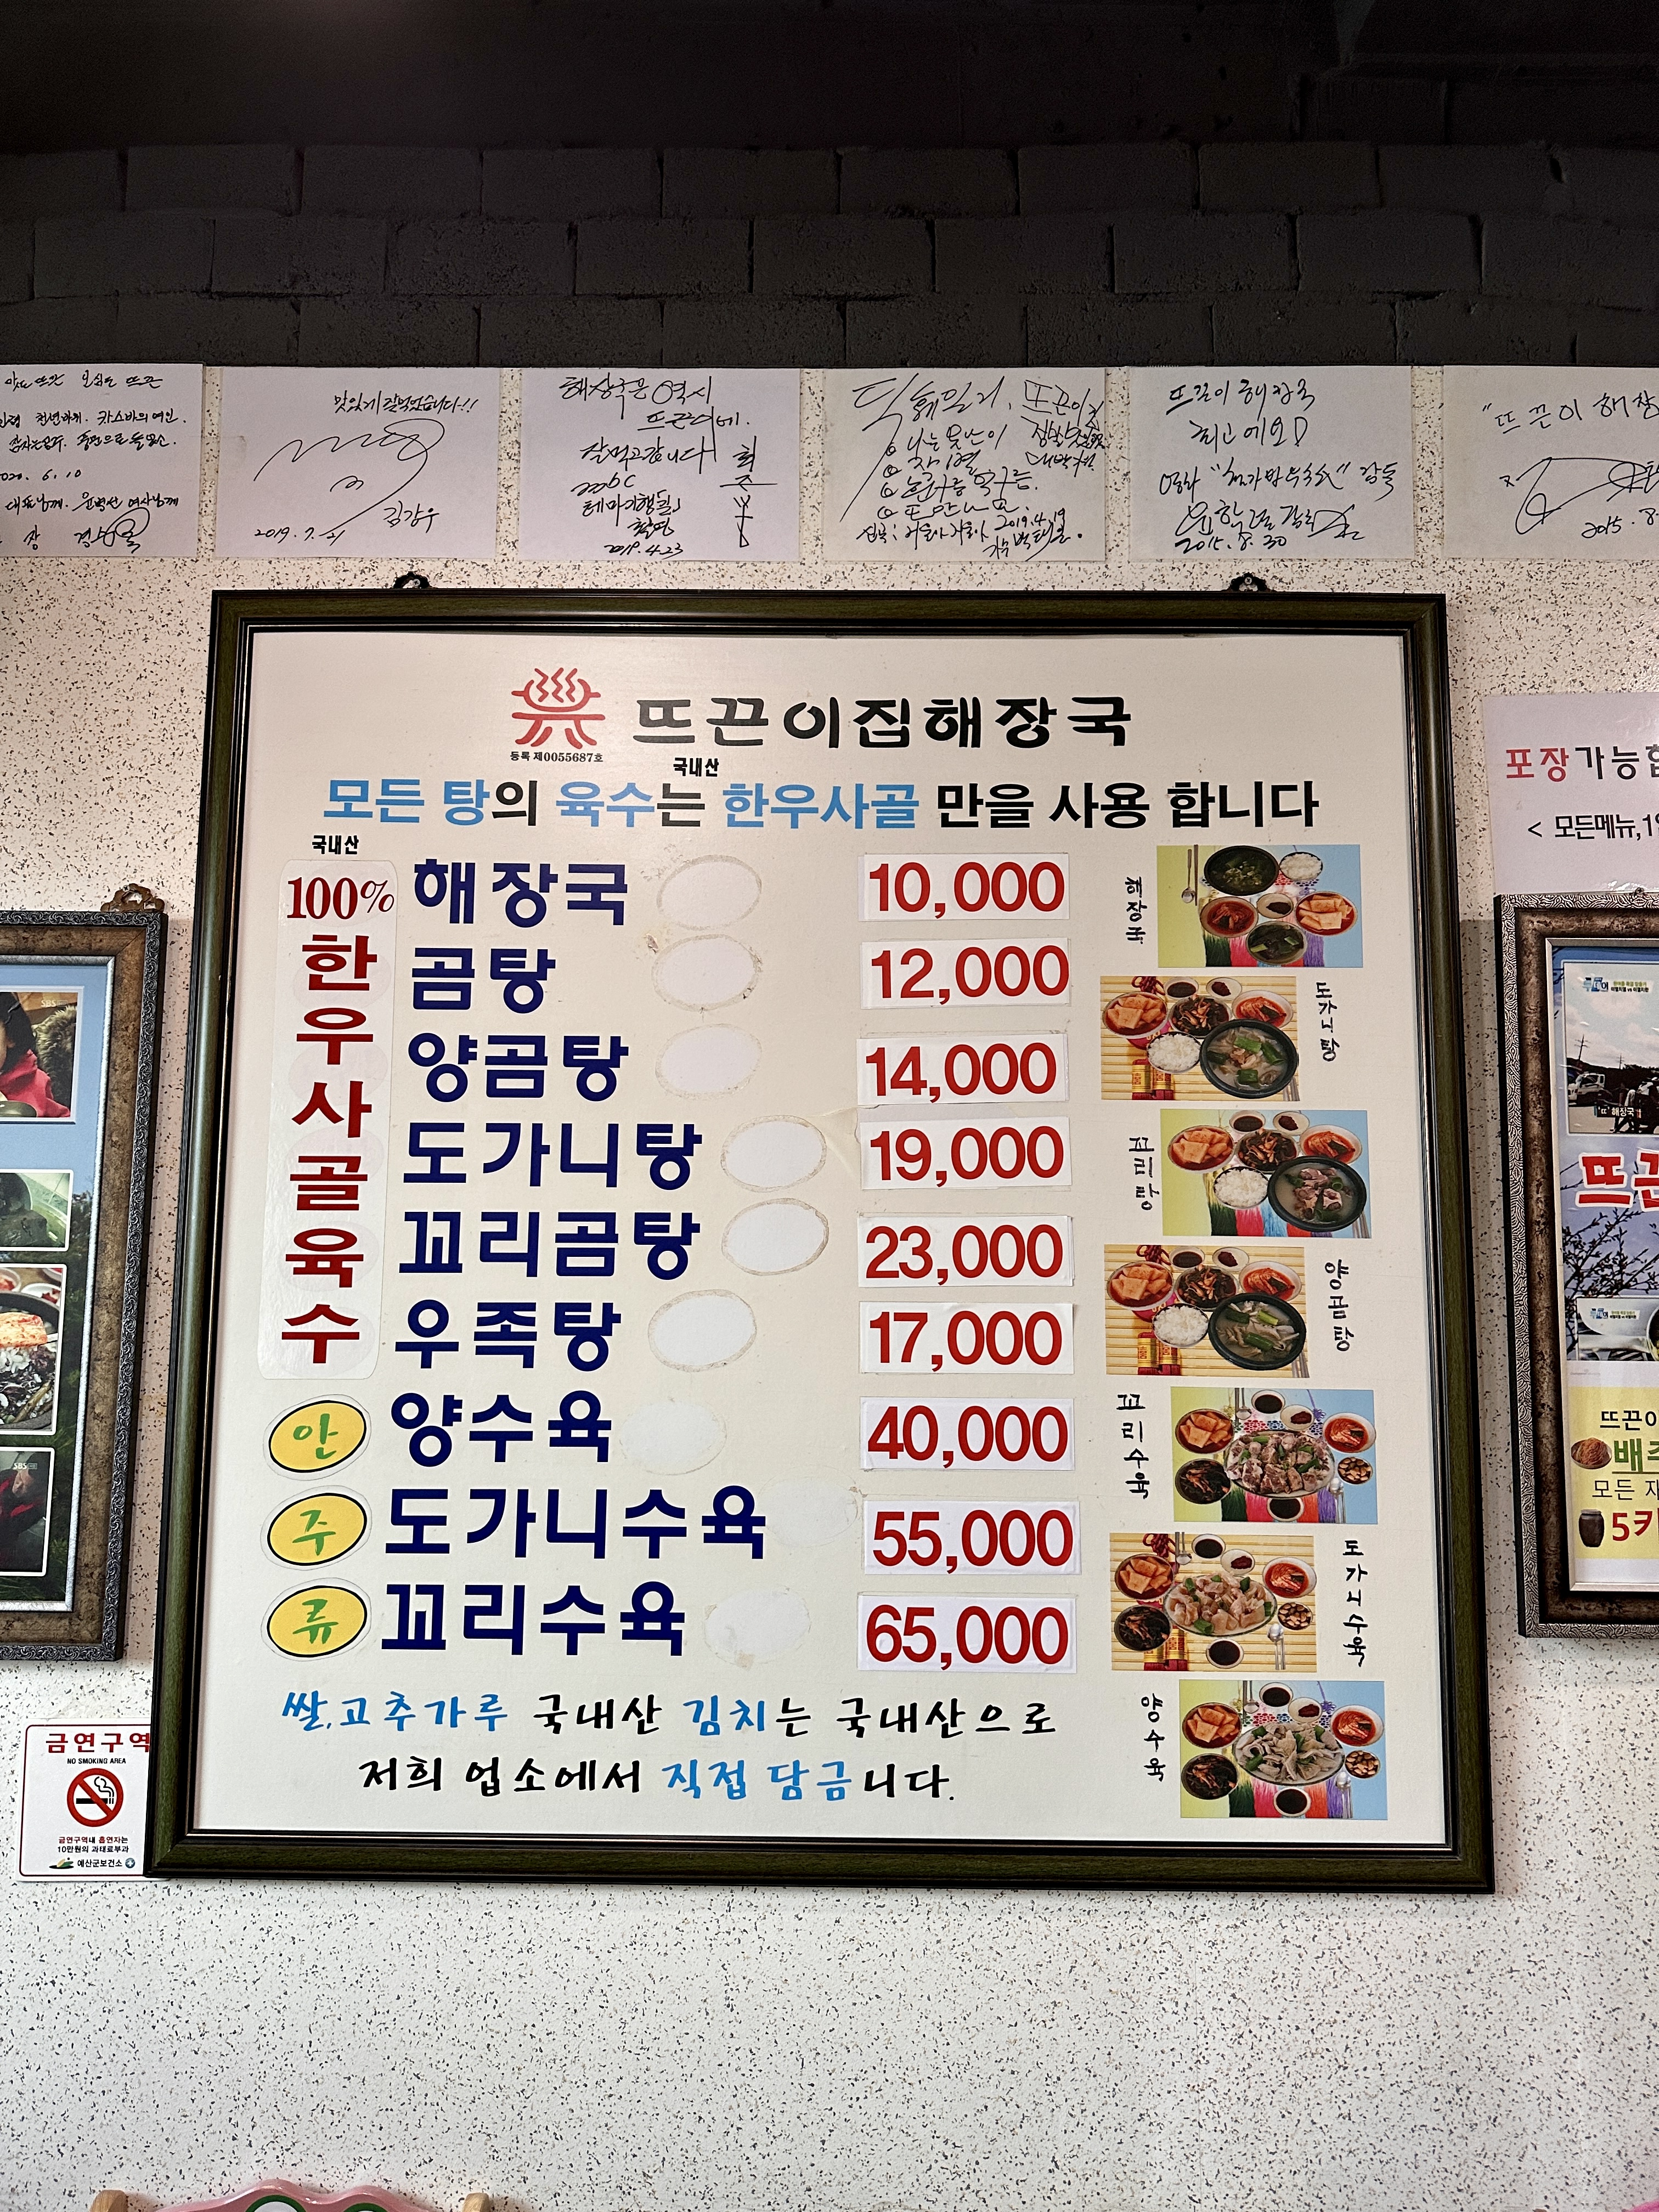 맛있게 잘먹었습니다!!
김강우
2019. 7. 21
해장국은 역시
뜨끈이네.
잘먹고갑니다
mbc
테마기행길
촬영
2019.4.23
뜨끈이
나는 못난이
2019.4.19
뜨끈이 해장국
최고예요!
영화
2015. 8. 30
"뜨끈이 해장
2015.8
2020. 6. 10
뜨끈이집해장국
등록 제0055687호
국내산
모든 탕의 육수는 한우사골 만을 사용 합니다
국내산
100% 한우사골육수
해장국 10,000
곰탕 12,000
양곰탕 14,000
도가니탕 19,000
꼬리곰탕 23,000
우족탕 17,000
안주류
양수육 40,000
도가니수육 55,000
꼬리수육 65,000
해장국
도가니탕
꼬리탕
양곰탕
꼬리수육
도가니수육
양수육
쌀,고추가루 국내산 김치는 국내산으로
저희 업소에서 직접 담금니다.
금연구역
NO SMOKING AREA
금연구역내 흡연자는
10만원의 과태료부과
예산군보건소
포장가능합
< 모든메뉴,1인
SBS
SBS
"뜨" 해장국
뜨끈
뜨끈이
배추
모든 재
5가